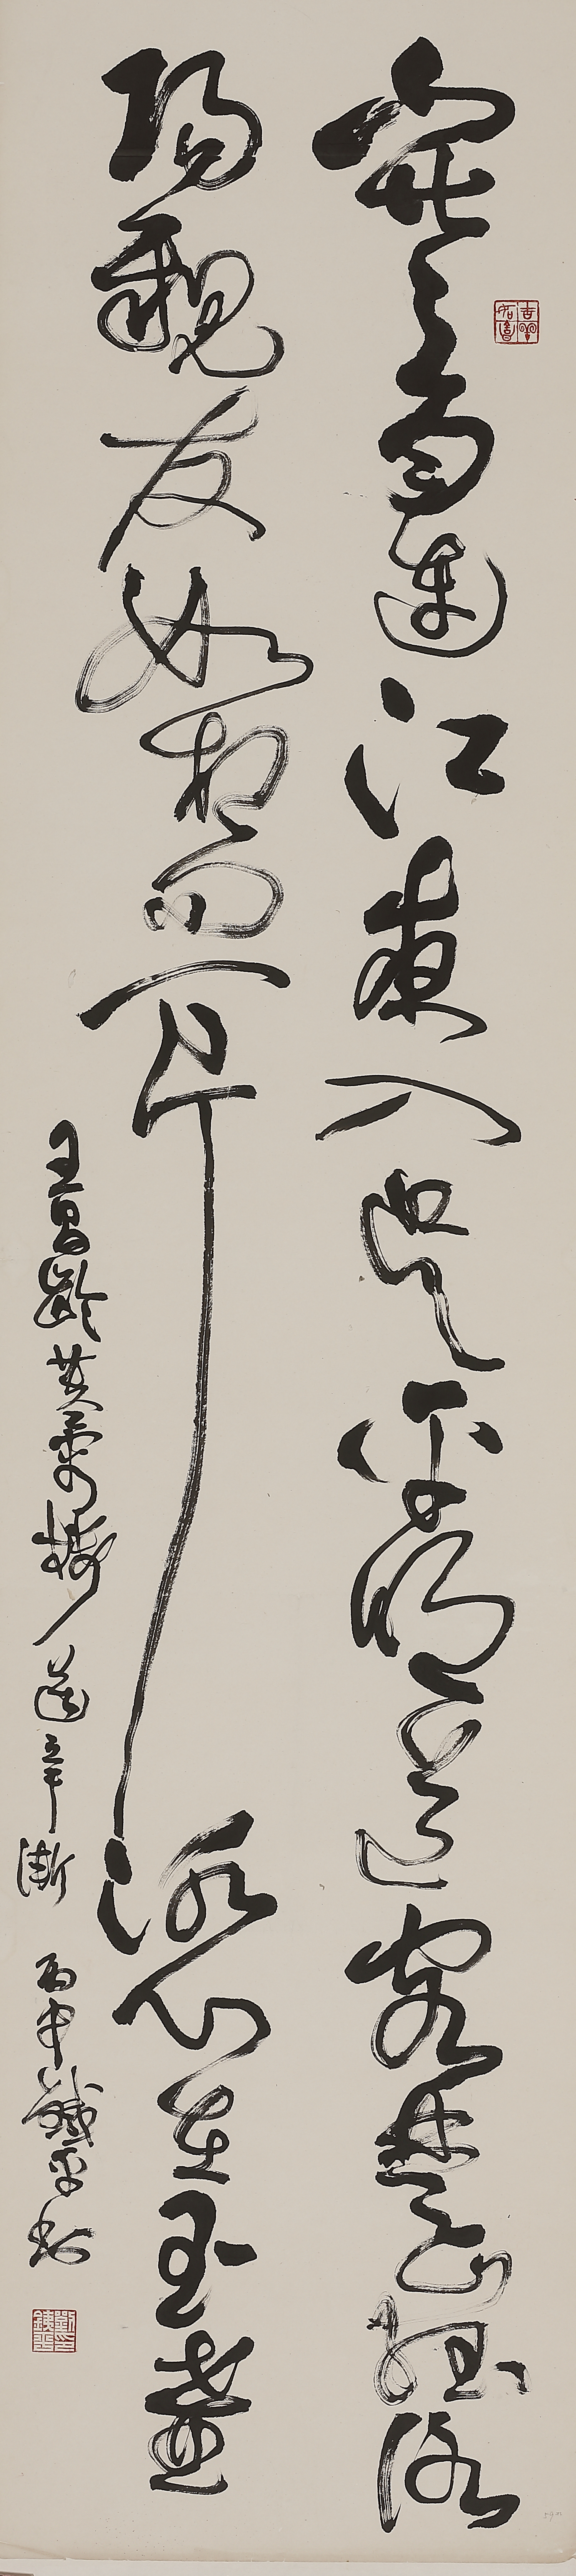 寒雨連江夜入吳平明送客楚山孤洛
陽親友如相問一片冰心在玉壺
王昌齡芙蓉樓送辛漸 丙申鐵平書